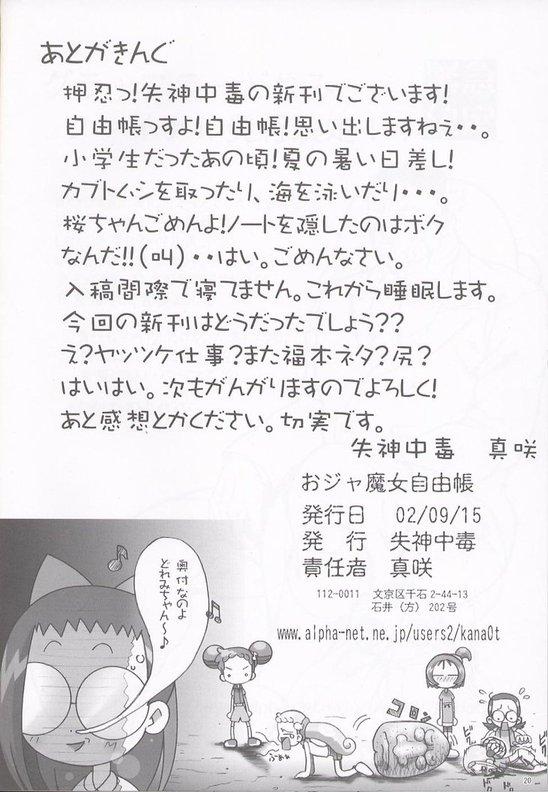 あとがきんぐ
押忍っ!失神中毒の新刊でございます!
自由帳っすよ!自由帳!思い出しますねぇ・・。
小学生だったあの頃!夏の暑い日差し!
カブトムシを取ったり、海を泳いだり・・・。
桜ちゃんごめんよ!ノートを隠したのはボク
なんだ!!(叫)・・はい。ごめんなさい。
入稿間際で寝てません。これから睡眠します。
今回の新刊はどうだったでしょう??
え?ヤッツケ仕事?また福本ネタ?尻?
はいはい。次もがんがりますのでよろしく!
あと感想とかください。切実です。
失神中毒 真咲
おジャ魔女自由帳
発行日 02/09/15
発 行 失神中毒
責任者 真咲
112-0011 文京区千石2-44-13
石井(方) 202号
www.alpha-net.ne.jp/users2/kana0t
奥付なのよ
どれみちゃん〜♪
コロン
20